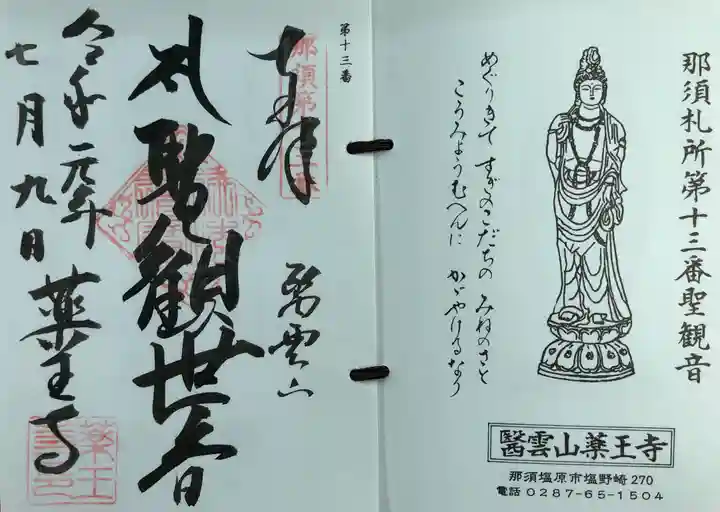 那須札所第十三番聖観音
めぐりきて すぎのこだちの みねのさと
こうみょうむへんに かゞやけるなり
醫雲山薬王寺
那須塩原市塩野崎270
電話0287-65-1504
第十三番
奉拝
醫雲山
聖観世音
令和元年
七月九日
薬王寺
薬王